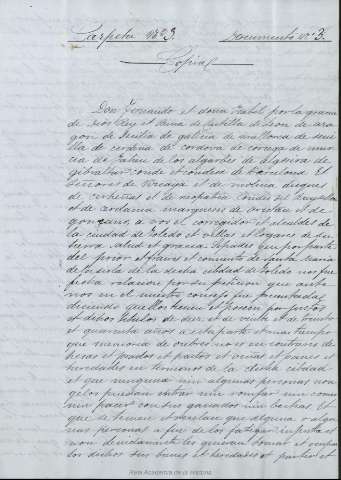 Carpeta Nº 3. Documento nº 3.
Copia
Don Fernando et doña Isabel por la gracia
de dios Rey et Reina de Castilla de Leon de ara
gon de Secilia de galicia de mallorca de sevi
lla de cerdeña de cordova de corcega de mur
cia de Jahen de los algarbes de algesira de
gibraltar conde et condesa de barcelona et
señores de Viscaya et de molina duques
de athenas et de neopatria Condes de Ruysellon
et de cerdania marqueses de oristan et de
gociano a vos el corregidor et alcaldes de
la ciudad de Toledo et villas et logares de su
tierra salud et gracia Sepades que por parte
del prior et frayres et convento de Santa Maria
de la dicha cibdad de Toledo nos fue
fecha relacion por su peticion que ante
nos en el nuestro consejo fue presentada
disiendo quellos tienen et poseen por justos
et debidos titulos de dies et de veinte et de treinta
et quarenta años a esta parte et mas tiempo
que memoria de onbres no es en contrario de
hesas et prados et pastos et viñas et panes et
heredades en terminos de la dicha cibdad
et que ninguna nin algunas personas non
gelos puedan entrar nin ronper nin comer
nin pacer con sus ganados nin bestias Et
que se temen et recelan que alguna o algu
nas personas a fin de los fatigar injusta et
non devidamente les querran tomar et ocupar
los dichos sus bienes et heredades et pastos et
Real Academia de la Historia